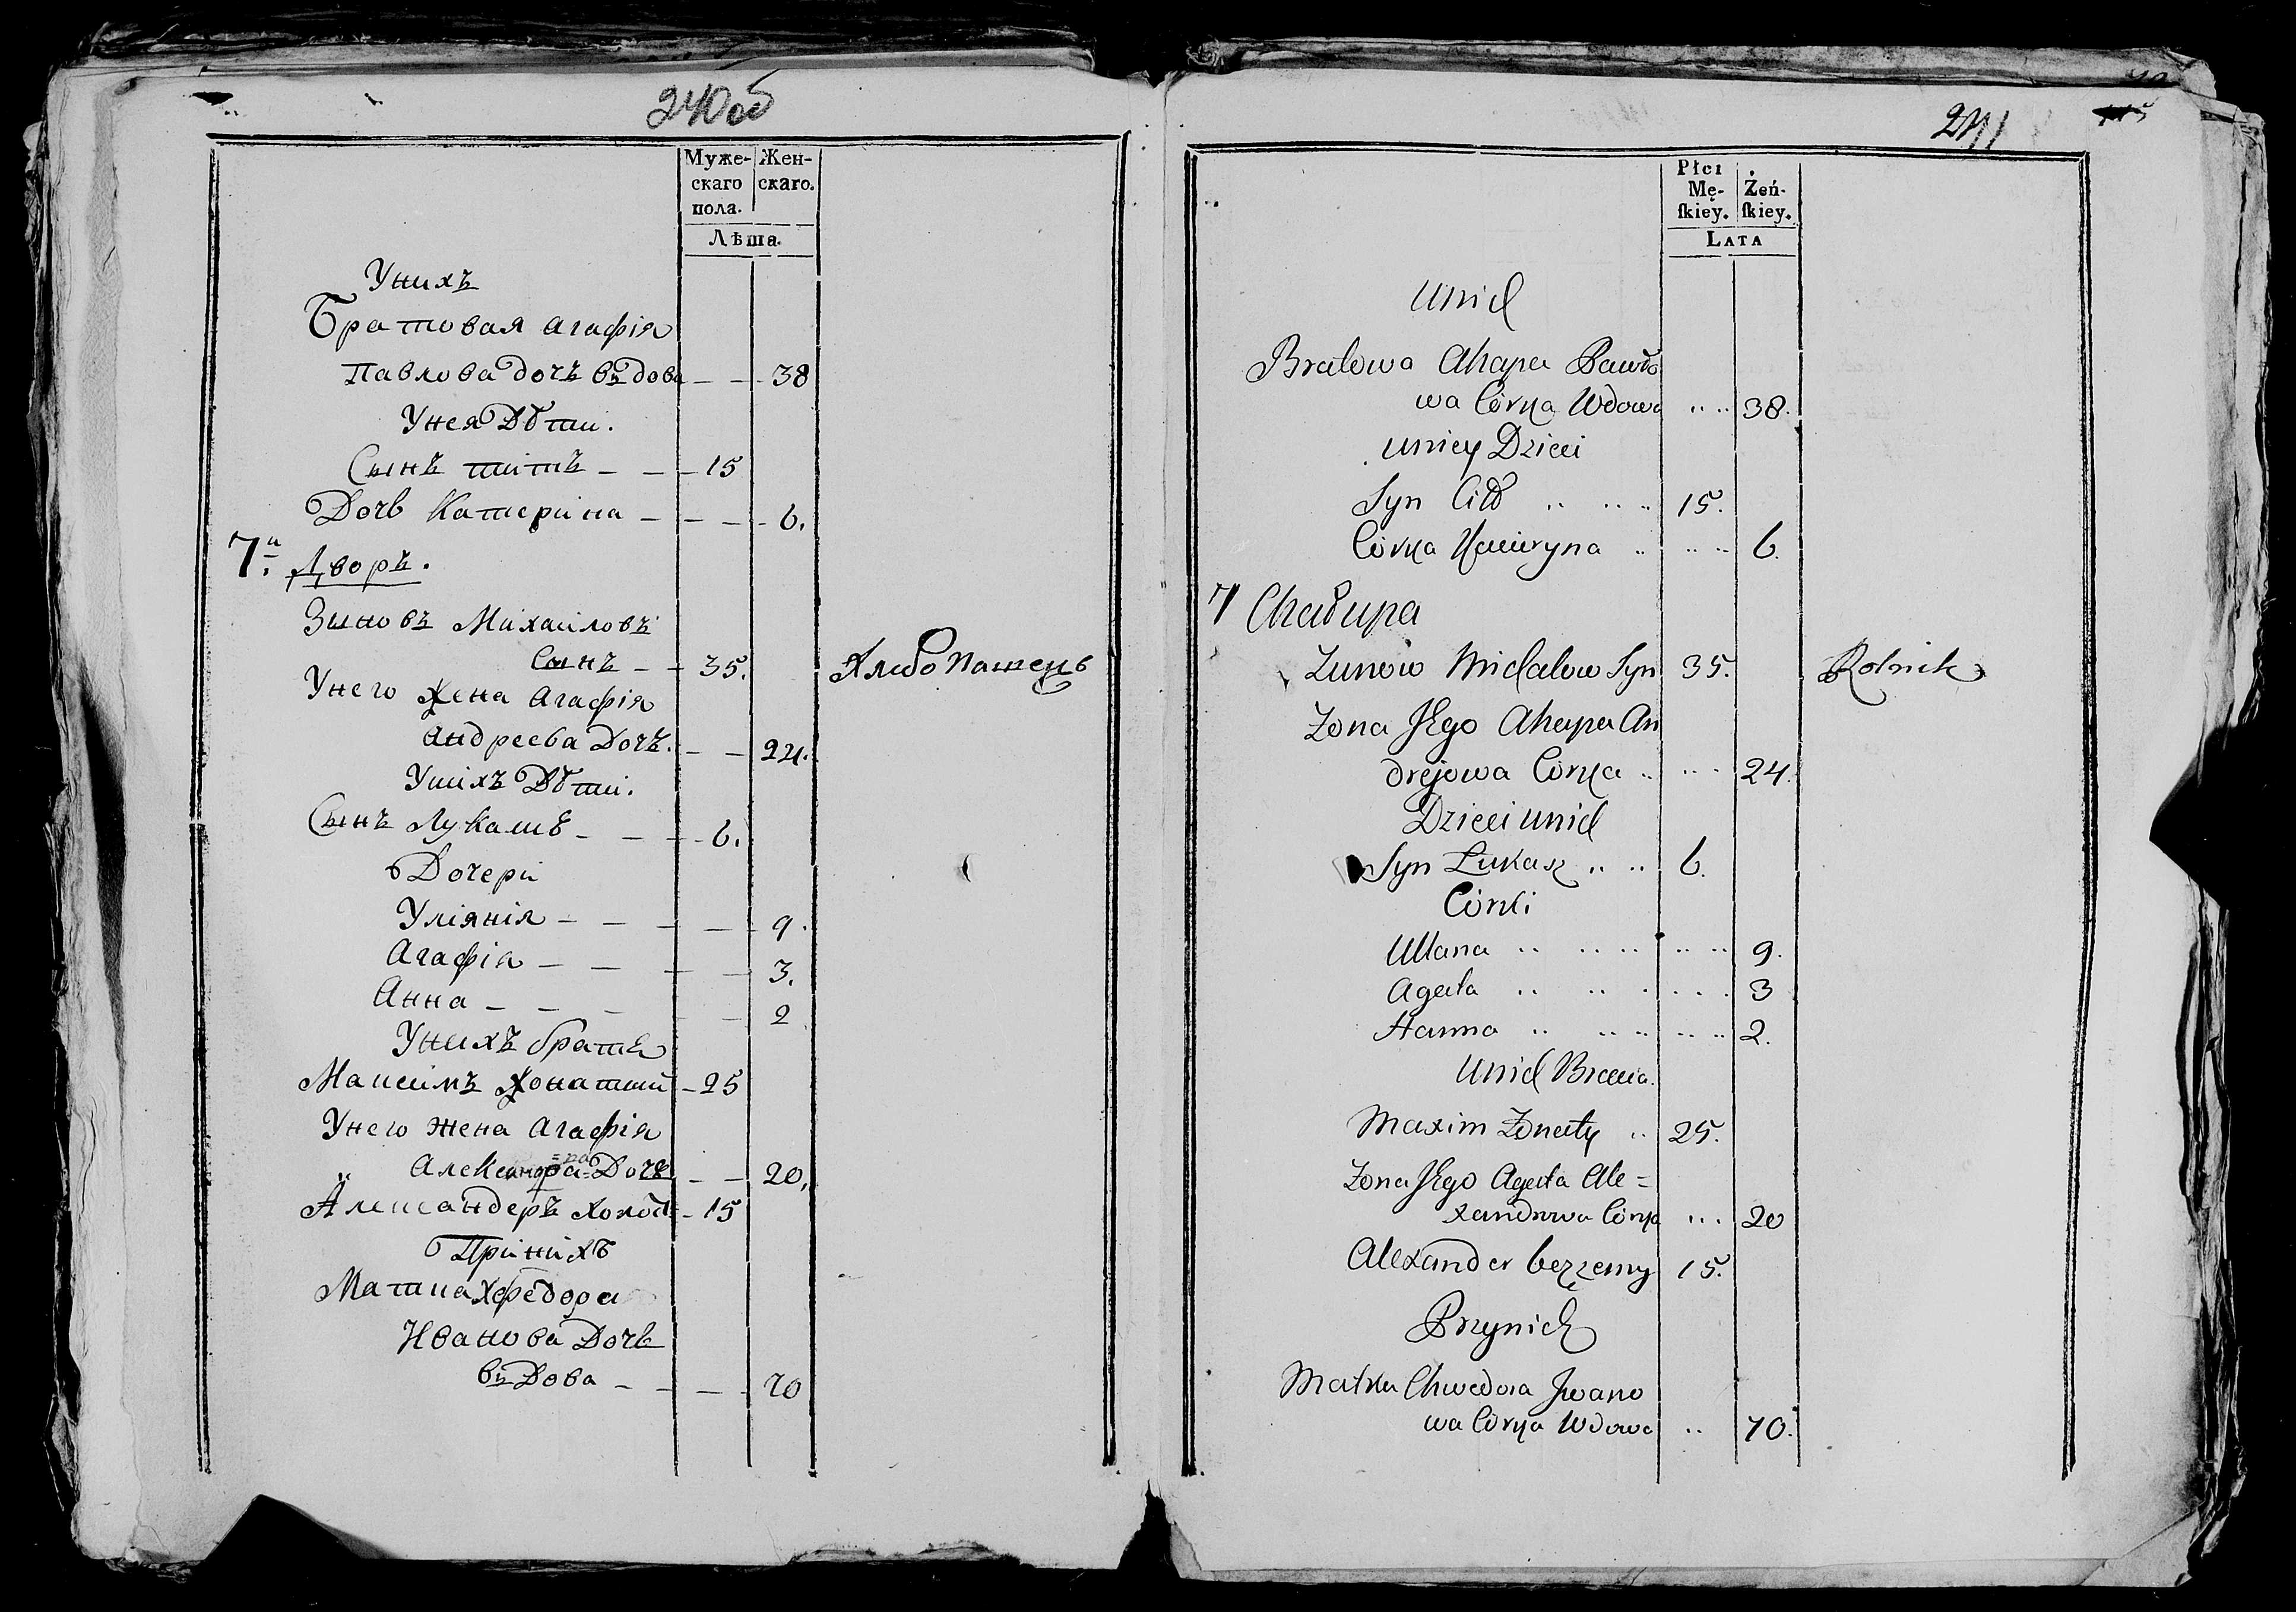 240об
Муже- Жен-
скаго скаго.
пола.
Лѣта.
Унихъ
Братовая Агафія
Павлова дочъ въдова — — 38
Унея Дѣти.
Сынъ титъ — — 15
Дочь Катерина — — — 6.
7й Дворъ.
Зыновъ Михаиловъ
Сынъ — — 35. Хлебопашецъ
Унего Жена Агафія
Андреева Дочъ. — — 24.
Унихъ Дѣти.
Сынъ Лукашъ — — — 6.
Дочери
Уліянія — — — — 9.
Агафія — — — — 3.
Анна — — — — 2
Унихъ братъ
Максимъ Жонатый — 25
Унего жена Агафія
Александра Дочъ — — 20.
Александеръ холост — 15
Принихъ
Матка Хфедора
Иванова Дочь
въДова — — — 70
241
Płci
Mę- Żeń-
ſkiey. ſkiey.
Lata
Unich
Bratowa Ahapa Pawło
wa Córka Wdowa .. .. 38.
uniey Dzieci
Syn Cit .. .. .. 15.
Córka Kaciaryna .. .. .. 6.
7 Chałupa
Zunow Michałow Syn 35. Rolnik
Zona Jego Ahapa An
drejowa Córka .. .. . 24.
Dzieci unich
Syn Łukasz .. .. 6.
Córki
Ullana .. .. .. .. .. 9.
Agata .. .. . . . . 3
Hanna .. .. .. .. .. 2.
Unich Bracia.
Maxim Zonaty .. 25.
Zona Jego Agata Ale=
xandrowa Córka ... 20
Alexander bezzenny 15.
Przynich
Matka Chwedora Jwano
wa Córka Wdowa .. 70.